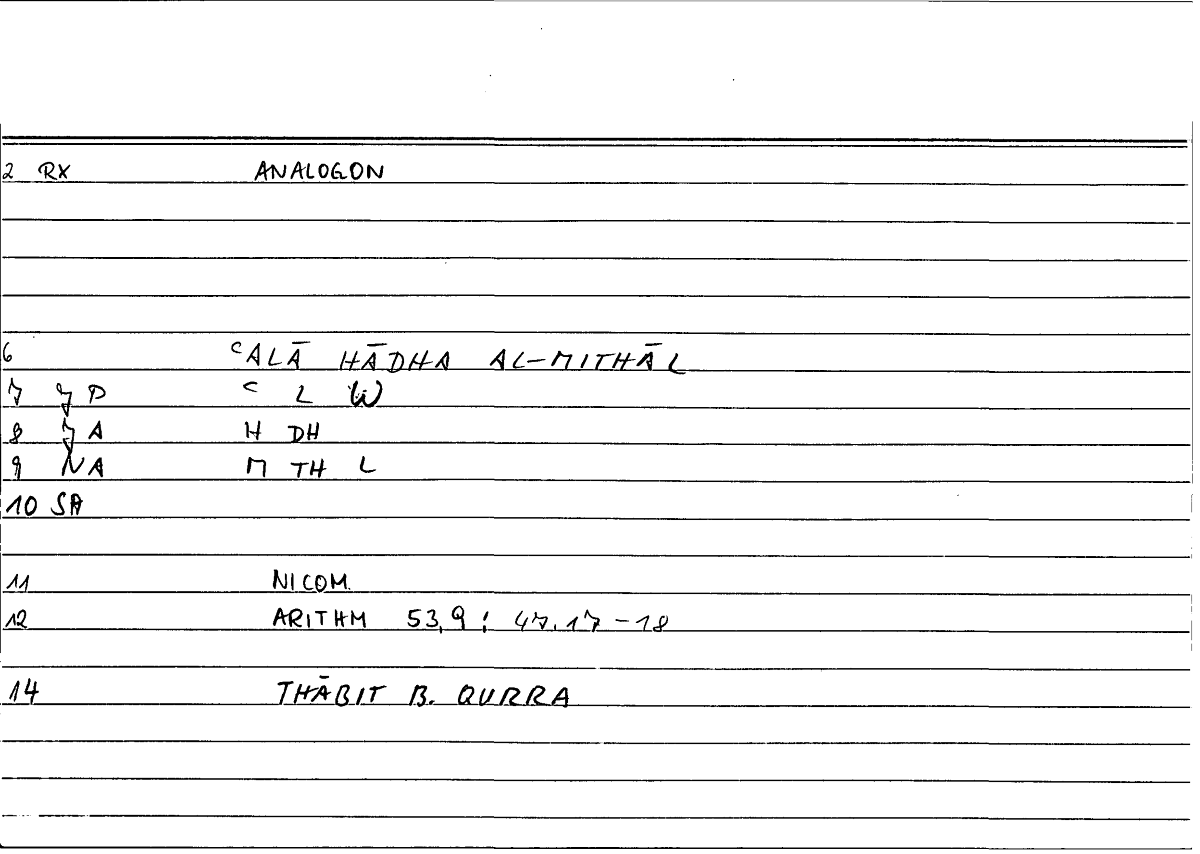 2 RX ANALOGON
6 ᶜALĀ HĀDHA AL-MITHĀL
7 P ᶜ L W
8 A H DH
9 NA M TH L
10 SA
11 NICOM.
12 ARITHM 53,9 : 47.17-18
14 THĀBIT B. QURRA